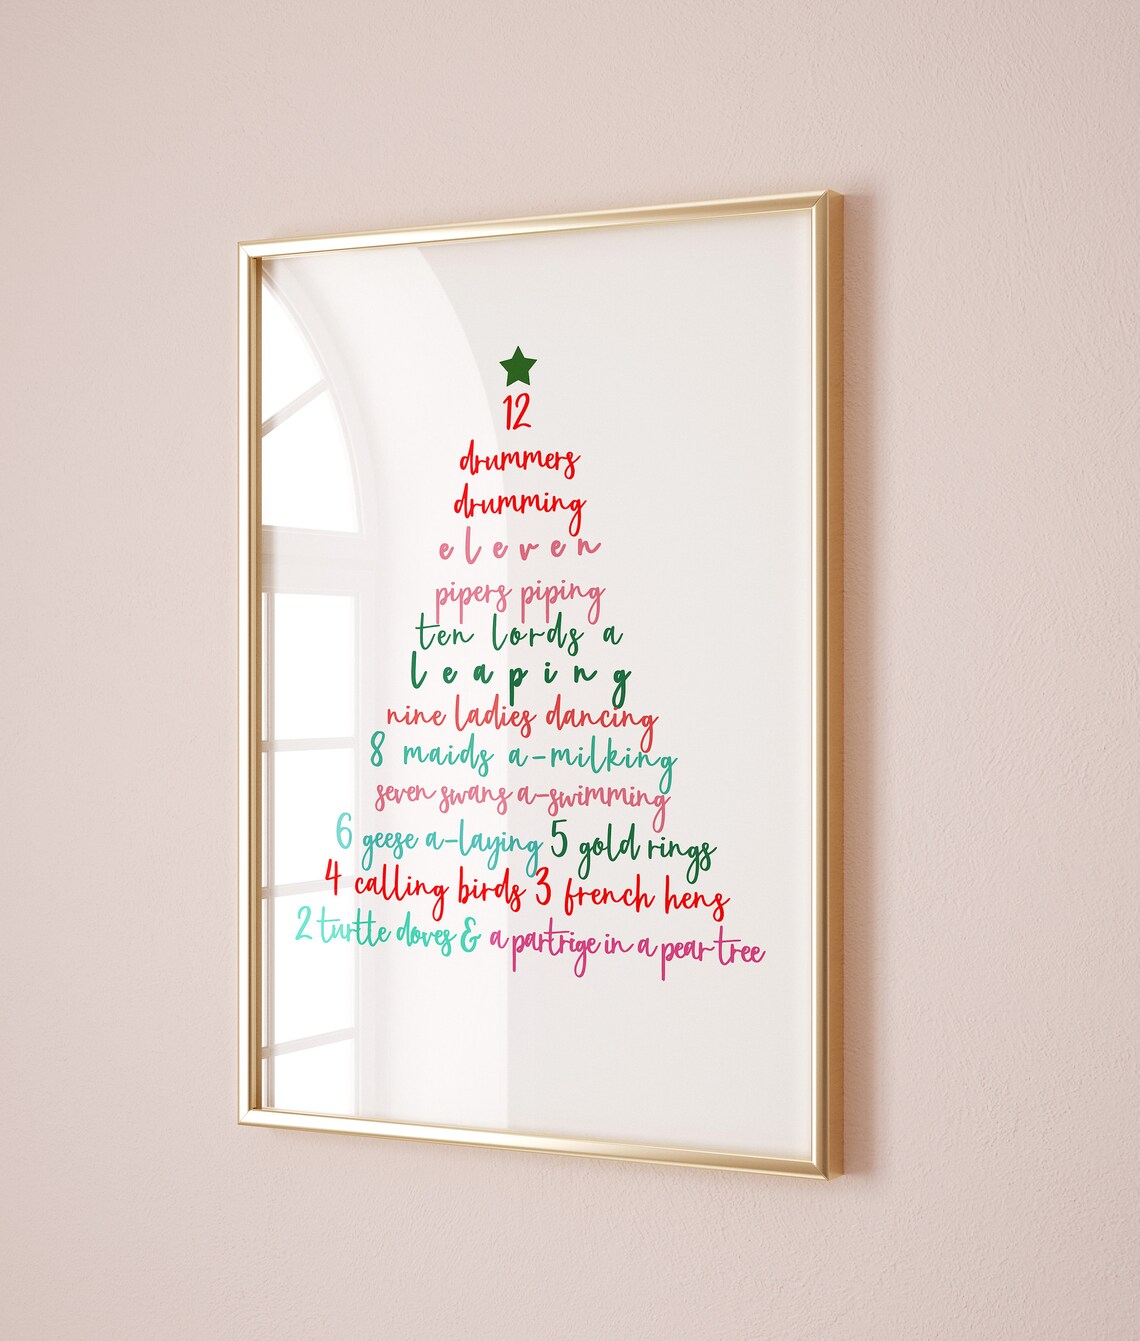 12
drummers
drumming
eleven
pipers piping
ten lords a
leaping
nine ladies dancing
8 maids a-milking
seven swans a-swimming
6 geese a-laying 5 gold rings
4 calling birds 3 french hens
2 turtle doves & a partrige in a pear tree